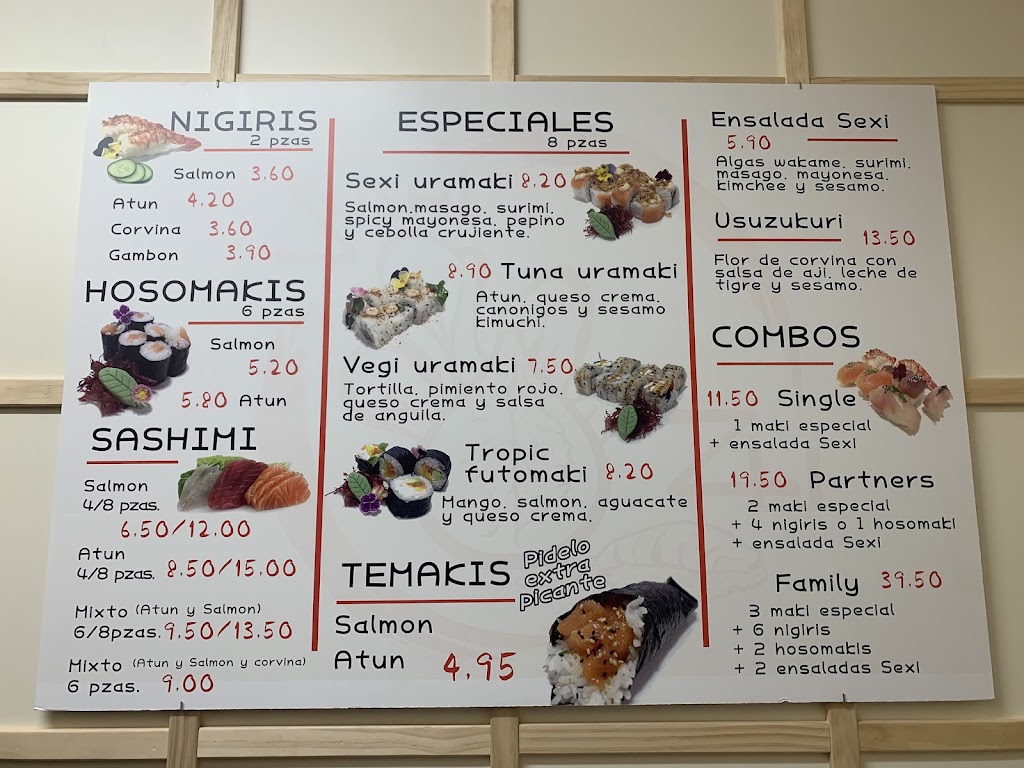 NIGIRIS
2 pzas
Salmon 3.60
Atun 4.20
Corvina 3.60
Gambon 3.90
HOSOMAKIS
6 pzas
Salmon
5.20
5.80 Atun
SASHIMI
Salmon
4/8 pzas.
6.50/12.00
Atun
4/8 pzas. 8.50/15.00
Mixto (Atun y Salmon)
6/8pzas. 9.50/13.50
Mixto (Atun y Salmon y corvina)
6 pzas. 9.00
ESPECIALES
8 pzas
Sexi uramaki 8.20
Salmon,masago, surimi,
spicy mayonesa, pepino
y cebolla crujiente.
8.90 Tuna uramaki
Atun, queso crema,
canonigos y sesamo
kimuchi.
Vegi uramaki 7.50
Tortilla, pimiento rojo,
queso crema y salsa
de anguila.
Tropic
futomaki 8.20
Mango, salmon, aguacate
y queso crema.
TEMAKIS
Pidelo
extra
picante
Salmon
Atun 4.95
Ensalada Sexi
5.90
Algas wakame, surimi,
masago, mayonesa,
kimchee y sesamo.
Usuzukuri
13.50
Flor de corvina con
salsa de aji, leche de
tigre y sesamo.
COMBOS
11.50 Single
1 maki especial
+ ensalada Sexi
19.50 Partners
2 maki especial
+ 4 nigiris o 1 hosomaki
+ ensalada Sexi
Family 39.50
3 maki especial
+ 6 nigiris
+ 2 hosomakis
+ 2 ensaladas Sexi